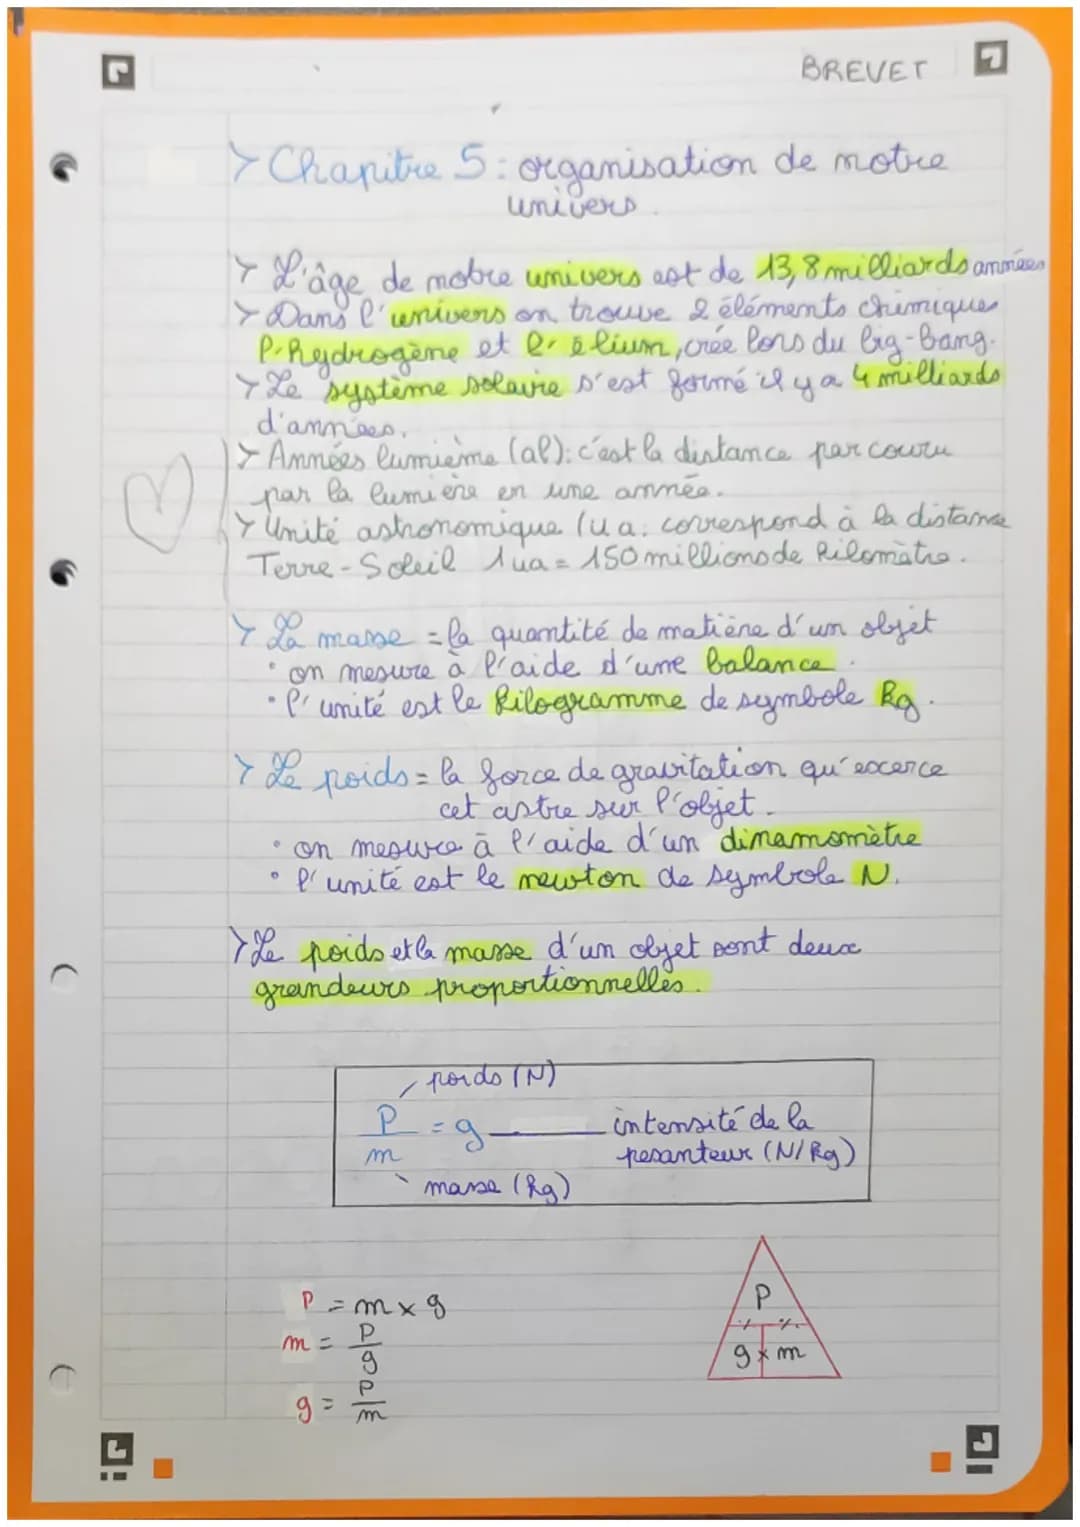 BREVET
> Chapitre 5 : organisation de notre
univers.
> L'âge de notre univers est de 13,8 milliards années
> Dans l'univers on trouve 2 éléments chimiques
l'hydrogène et l'élium, crée lors du big-bang.
> Le système solaire s'est formé il y a 4 milliards
d'années.
> Années lumière (al): c'est la distance parcouru
par la lumière en une année.
> Unité astronomique (ua: correspond à la distance
Terre-Soleil 1ua = 150 millions de kilomètre.
> La masse = la quantité de matière d'un objet
• on mesure à l'aide d'une balance.
• l'unité est le kilogramme de symbole kg.
> Le poids = la force de gravitation qu'excerce
cet astre sur l'objet.
• on mesure à l'aide d'un dinamomètre
• l'unité est le newton de symbole N.
> Le poids et la masse d'un objet sont deux
grandeurs proportionnelles.
poids (N)
P/m = g intensité de la
pesanteur (N/kg)
masse (kg)
P = m x g
m = P/g
g = P/m
P
g x m